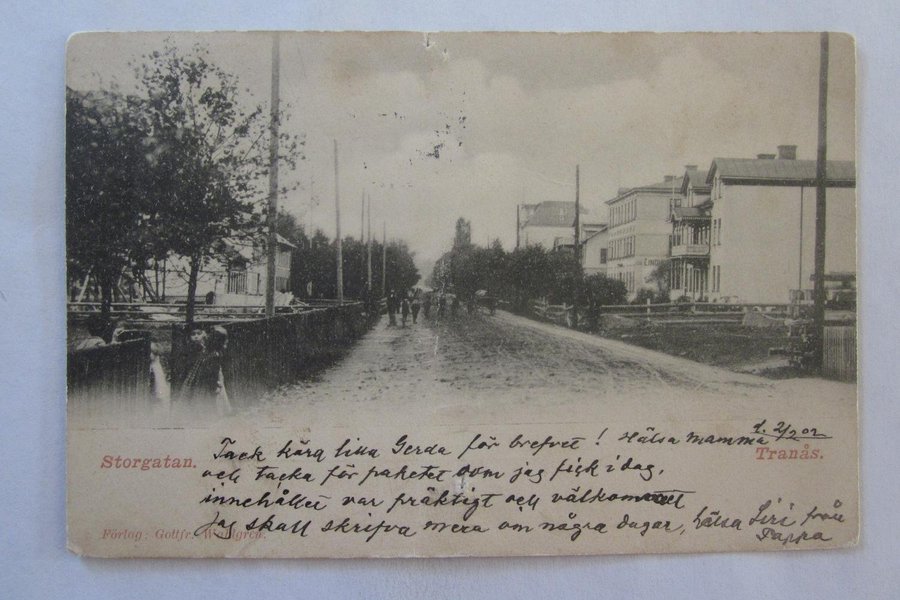 LIND
d. 2/2 02
Tack kära lilla Gerda för brefvet! Hälsa mamma
Storgatan.
Tranås.
och tacka för paketet som jag fick i dag,
innehållet var präktigt och välkommet
Jag skall skrifva mera om några dagar, hälsa Siri från
Pappa
Förlag: Gottfr. Wahlgren.